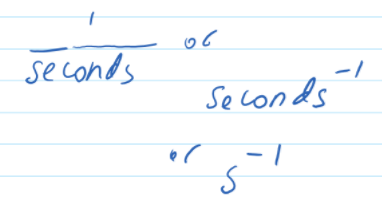 1/seconds or
seconds⁻¹
or s⁻¹